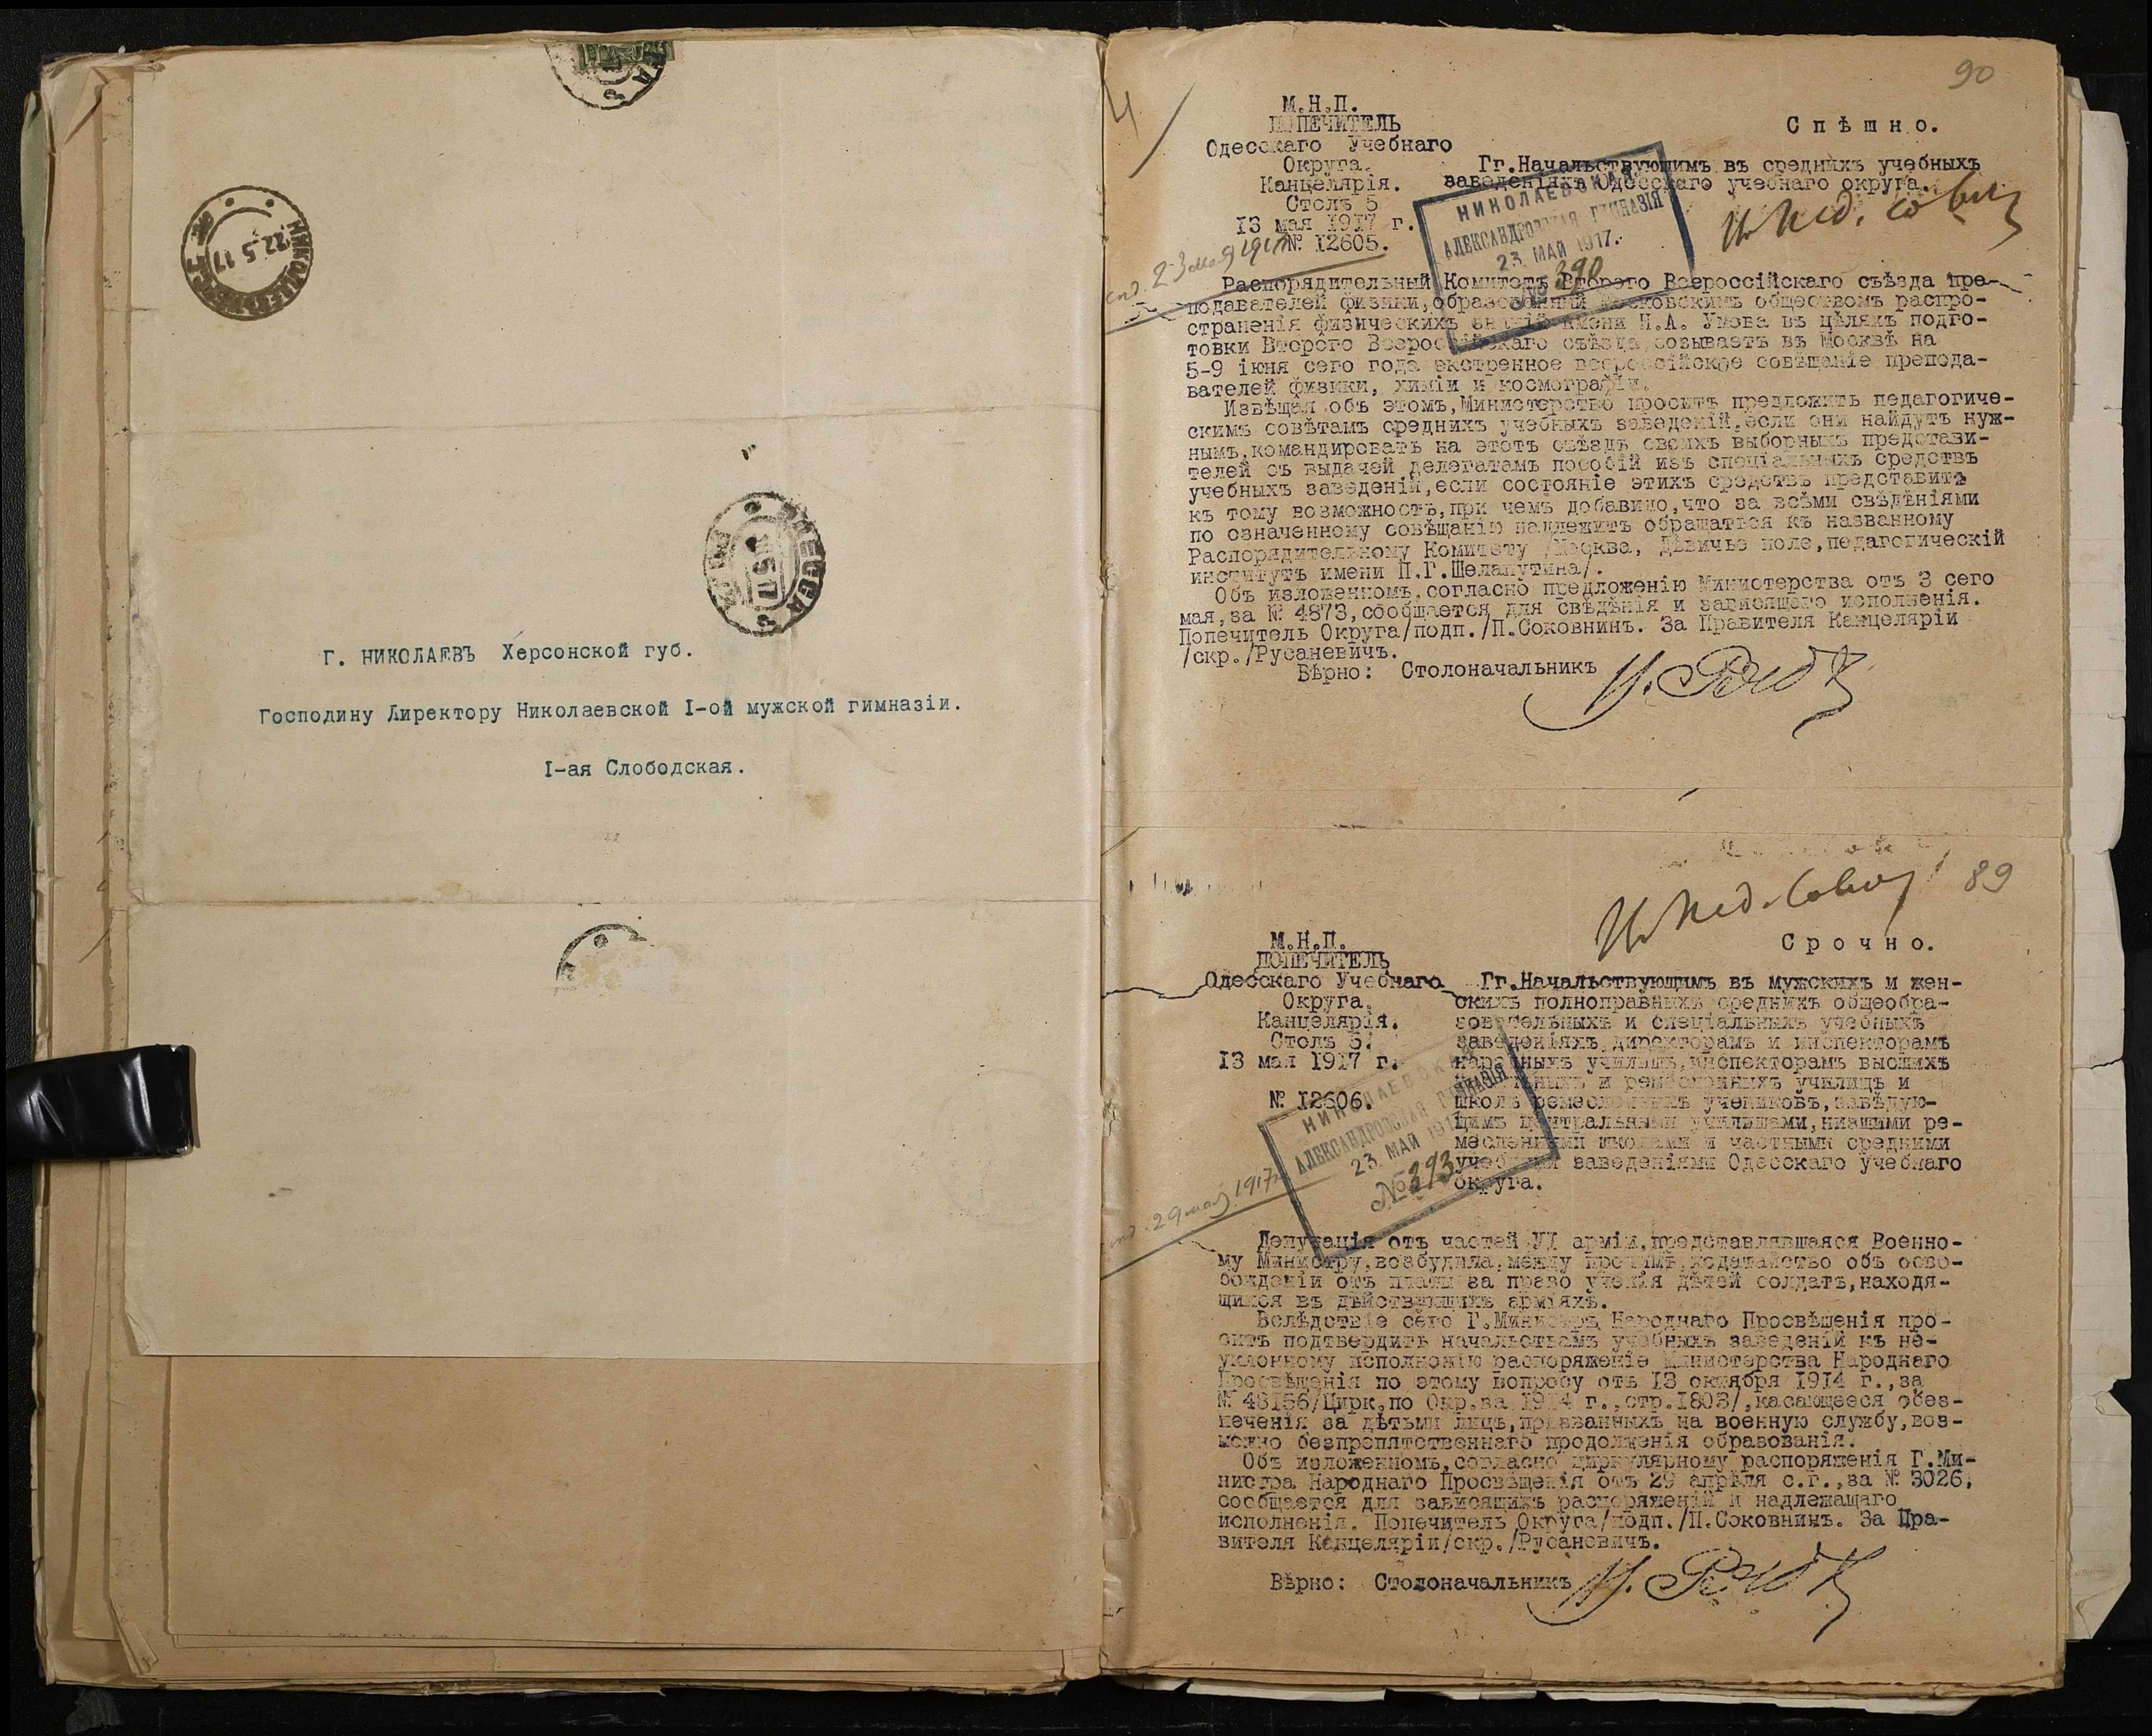 НИКОЛАЕВЪ
22.5.17
ОДЕССА
Г. НИКОЛАЕВЪ Херсонской губ.
Господину Директору Николаевской I-ой мужской гимназіи.
I-ая Слободская.
90
М.Н.П.
ПОПЕЧИТЕЛЬ
Одесскаго Учебнаго
Округа.
Канцелярія.
Столъ 5
13 мая 1917 г.
№ 12605.
Спѣшно.
Гг.Начальствующимъ въ среднихъ учебныхъ
заведеніяхъ Одесскаго учебнаго округа.
НИКОЛАЕВСКАЯ
АЛЕКСАНДРОВСКАЯ ГИМНАЗІЯ
23. МАЙ 1917.
№ 390
23 мая 1917
Распорядительный Комитетъ Второго Всероссійскаго съѣзда пре-
подавателей физики,образованный Московскимъ обществомъ распро-
страненія физическихъ знаній имени Н.А. Умова въ цѣляхъ подго-
товки Второго Всероссійскаго съѣзда,созываетъ въ Москвѣ на
5-9 іюня сего года экстренное всероссійское совѣщаніе препода-
вателей физики, химіи и космографіи.
Извѣщая объ этомъ,Министерство проситъ предложить педагогиче-
скимъ совѣтамъ среднихъ учебныхъ заведеній,если они найдутъ нуж-
нымъ,командировать на этотъ съѣздъ своихъ выборныхъ представи-
телей съ выдачей делегатамъ пособій изъ спеціальныхъ средствъ
учебныхъ заведеній,если состояніе этихъ средствъ представитъ
къ тому возможность,при чемъ добавило,что за всѣми свѣдѣніями
по означенному совѣщанію надлежитъ обращаться къ названному
Распорядительному Комитету /Москва, Дѣвичье поле,педагогическій
институтъ имени П.Г.Шелапутина/.
Объ изложенномъ,согласно предложенію Министерства отъ 3 сего
мая,за № 4873,сообщается для свѣдѣнія и зависящаго исполненія.
Попечитель Округа/подп./П.Соковнинъ. За Правителя Канцеляріи
/скр./Русановичъ.
Вѣрно: Столоначальникъ
89
М.Н.П.
ПОПЕЧИТЕЛЬ
Одесскаго Учебнаго
Округа.
Канцелярія.
Столъ 5.
13 мая 1917 г.
№ 12606.
Срочно.
Гг.Начальствующимъ въ мужскихъ и жен-
скихъ полноправныхъ среднихъ общеобра-
зовательныхъ и спеціальныхъ учебныхъ
заведеніяхъ,директорамъ и инспекторамъ
народныхъ училищъ,инспекторамъ высшихъ
начальныхъ и ремесленныхъ училищъ и
школъ ремесленныхъ учениковъ,завѣдую-
щимъ центральными училищами,низшими ре-
месленными школами и частными средними
учебными заведеніями Одесскаго учебнаго
округа.
НИКОЛАЕВСКАЯ
АЛЕКСАНДРОВСКАЯ ГИМНАЗІЯ
23. МАЙ 1917
№ 393
29 мая 1917
Депутація отъ частей VI арміи,представлявшаяся Военно-
му Министру,возбудила,между прочимъ,ходатайство объ осво-
божденіи отъ платы за право ученія дѣтей солдатъ,находя-
щихся въ дѣйствующихъ арміяхъ.
Вслѣдствіе сего Г.Министръ Народнаго Просвѣщенія про-
ситъ подтвердить начальствамъ учебныхъ заведеній къ не-
уклонному исполненію распоряженіе Министерства Народнаго
Просвѣщенія по этому вопросу отъ 13 октября 1914 г.,за
№ 48156/Цирк.по Окр.за 1914 г.,стр.1803/,касающееся обез-
печенія за дѣтьми лицъ,призванныхъ на военную службу,воз-
можно безпрепятственнаго продолженія образованія.
Объ изложенномъ,согласно циркулярному распоряженія Г.Ми-
нистра Народнаго Просвѣщенія отъ 29 апрѣля с.г.,за № 3026,
сообщается для зависящихъ распоряженій и надлежащаго
исполненія. Попечитель Округа/подп./П.Соковнинъ. За Пра-
вителя Канцеляріи/скр./Русановичъ.
Вѣрно: Столоначальникъ